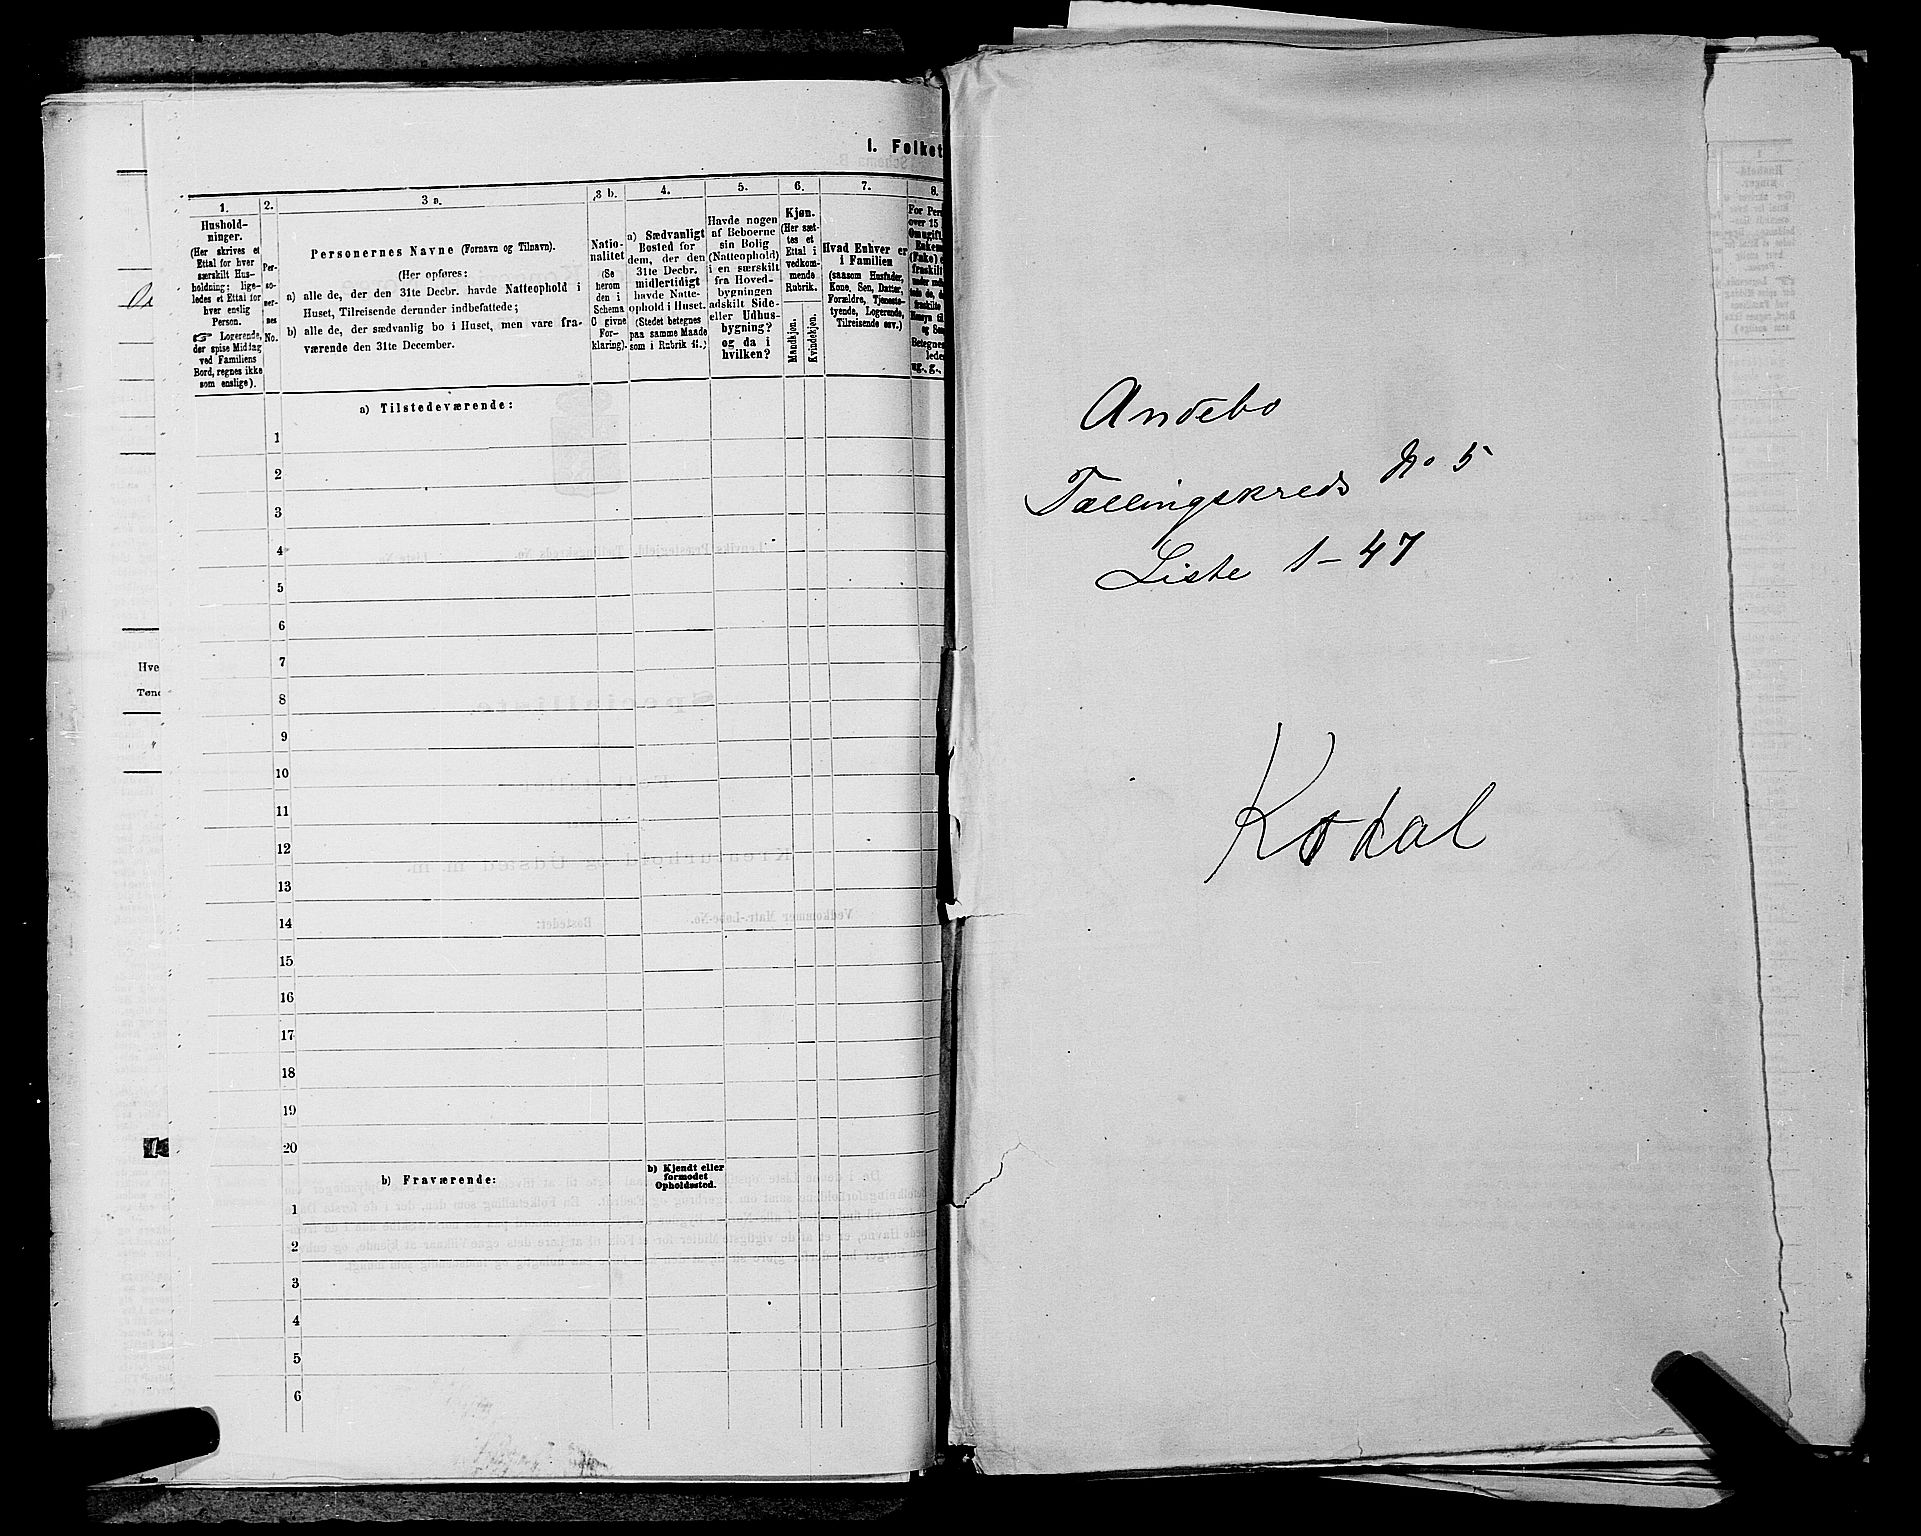 I. Folket
1.
2.
3 a.
3 b.
4.
5.
6.
7.
8.
Hushold-
ninger.
(Her skrives et
Ettal for hver
særskilt Hus-
holdning; lige-
ledes et Ettal for
hver enslig
Person.
☞ Logerende,
der spise Middag
ved Familiens
Bord, regnes ikke
som enslige).
Per-
so-
ner-
nes
No.
Personernes Navne (Fornavn og Tilnavn).
(Her opføres:
a) alle de, der den 31te Decbr. havde Natteophold i
Huset, Tilreisende derunder indbefattede;
b) alle de, der sædvanlig bo i Huset, men vare fra-
værende den 31te December.
Natio-
nalitet
(Se
herom
den i
Schema
C givne
For-
klaring).
a) Sædvanligt
Bosted for
dem, der den
31te Decbr.
midlertidigt
havde Natte-
ophold i Huset.
(Stedet betegnes
paa samme Maade
som i Rubrik 11.)
Havde nogen
af Beboerne
sin Bolig
(Natteophold)
i en særskilt
fra Hoved-
bygningen
adskilt Side-
eller Udhus-
bygning?
og da i
hvilken?
Kjøn.
(Her sæt-
tes et
Ettal i
vedkom-
mende
Rubrik.
Mandkjøn.
Kvindekjøn.
Hvad Enhver er
i Familien
(saasom Husfader,
Kone, Søn, Datter,
Forældre, Tjeneste-
tyende, Logerende,
Tilreisende osv.)
For Pers
over 15
Omugift,
Enkema
(Enke) e
fraskilt
ug., g.,
a) Tilstedeværende:
1
2
3
4
5
6
7
8
9
10
11
12
13
14
15
16
17
18
19
20
b) Fraværende:
b) Kjendt eller
formodet
Opholdssted.
1
2
3
4
5
6
Hve
Tønd
Andebo
Tællingskreds No 5
Liste 1-47
Kodal